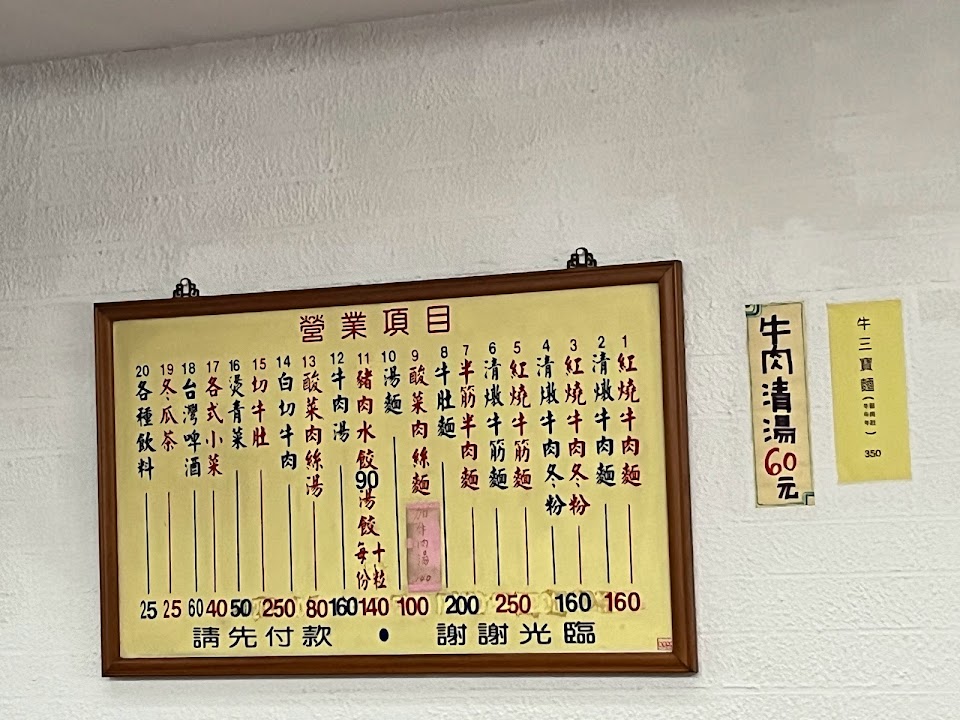 營業項目
1 紅燒牛肉麵
2 清燉牛肉麵
3 紅燒牛肉冬粉
4 清燉牛肉冬粉
5 紅燒牛筋麵
6 清燉牛筋麵
7 半筋半肉麵
8 牛肚麵
9 酸菜肉絲麵
10 湯麵
11 豬肉水餃90湯餃每份十粒
12 牛肉湯
13 酸菜肉絲湯
14 白切牛肉
15 切牛肚
16 燙青菜
17 各式小菜
18 台灣啤酒
19 冬瓜茶
20 各種飲料
25 25 60 40 50 250 80 160 140 100 200 250 160 160
請先付款 • 謝謝光臨
牛肉清湯60元
牛三寶麵
350